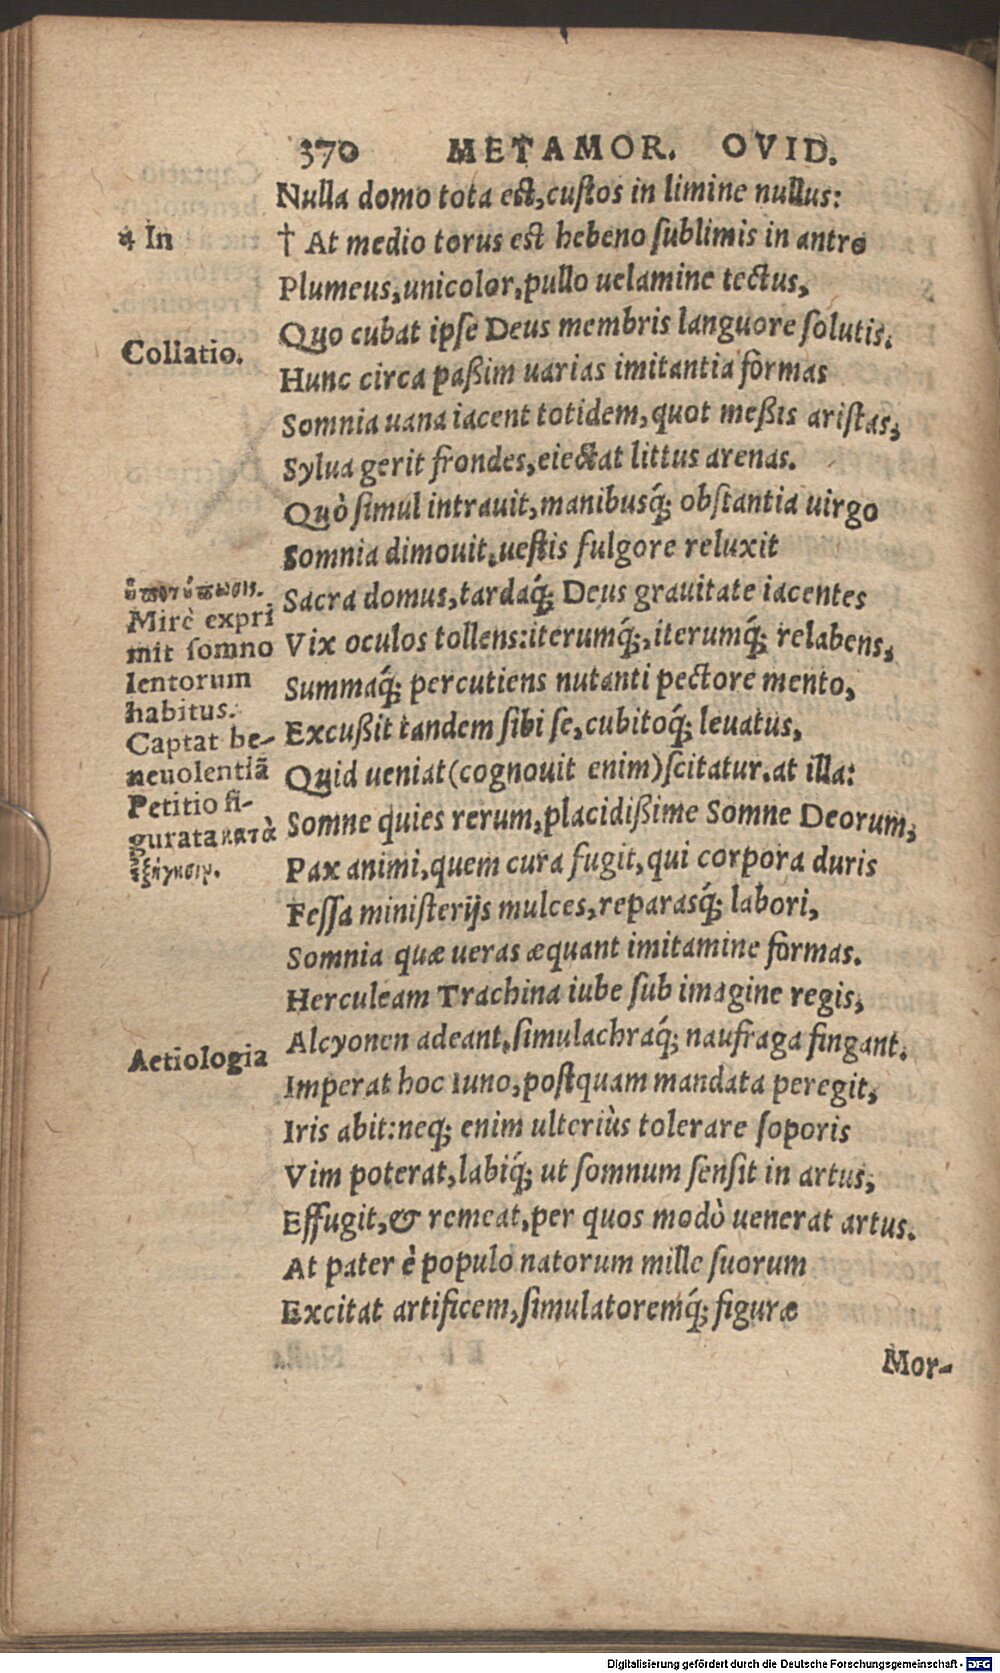 370 METAMOR. OVID.
Nulla domo tota est, custos in limine nullus:
4 In
† At medio torus est hebeno sublimis in antro
Plumeus, unicolor, pullo uelamine tectus,
Quo cubat ipse Deus membris languore solutis.
Collatio.
Hunc circa paßim uarias imitantia formas
Somnia uana iacent totidem, quot meßis aristas,
Sylua gerit frondes, eiectat littus arenas.
Quò simul intrauit, manibusq́; obstantia uirgo
Somnia dimouit, uestis fulgore reluxit
ὑποτύπωσις.
Mirè expri
mit somno
lentorum
habitus.
Captat be-
neuolentiã
Petitio fi-
gurata κατὰ
ἐξήγησιν.
Sacra domus, tardaq́; Deus grauitate iacentes
Vix oculos tollens: iterumq́;, iterumq́; relabens,
Summaq́; percutiens nutanti pectore mento,
Excußit tandem sibi se, cubitoq́; leuatus,
Quid ueniat (cognouit enim) scitatur. at illa:
Somne quies rerum, placidißime Somne Deorum,
Pax animi, quem cura fugit, qui corpora duris
Fessa ministerijs mulces, reparasq́; labori,
Somnia quæ ueras æquant imitamine formas.
Herculeam Trachina iube sub imagine regis,
Alcyonen adeant, simulachraq́; naufraga fingant.
Aetiologia
Imperat hoc Iuno, postquam mandata peregit,
Iris abit: neq; enim ulteriùs tolerare soporis
Vim poterat, labiq́; ut somnum sensit in artus,
Effugit, & remeat, per quos modò uenerat artus.
At pater è populo natorum mille suorum
Excitat artificem, simulatoremq́; figuræ
Mor-
Digitalisierung gefördert durch die Deutsche Forschungsgemeinschaft - DFG